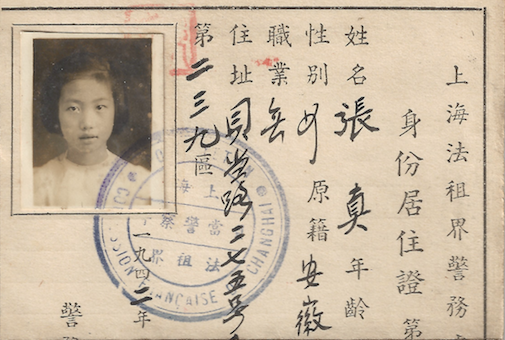 上海法租界警務
身份居住證第
姓名張真年齡
性別女原籍安徽
職業無
住址貝當路二七五号
第二三九區
一九四二年
警務
上海
當警察
法租界
SSION FRANÇAISE
CHANGHAI